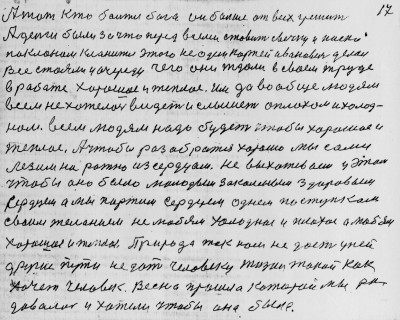 17
А тот кто боится бога он больше от всех грешит
А деньги были за что перед всеми ставит свечку и низкий
поклоном кланится этого не один Кортей иванович делал
Все стояли и очереду чего они ждали в своем труде
в работе хорошее и теплое. Им да вообще людям
всем не хотелось видеть и слышать о плохом и холод-
ном. всем людям надо будет чтобы хорошее и
теплое, А чтобы разобраться хорошо мы сами
лезим на ратно из сердцам. не выхотывали у этом
чтобы оно было молодым закаленым здоровым
сердцем а мы портим сердцем одним поступкам
своим желанием не любим холодное и плохое а любим
хорошое и теплое. Природа так нам не дает у ней
другие пути не дать человеку жизни такой как
хочет человек. Весна пришла которой мы ра-
давались и хотели чтобы она была.